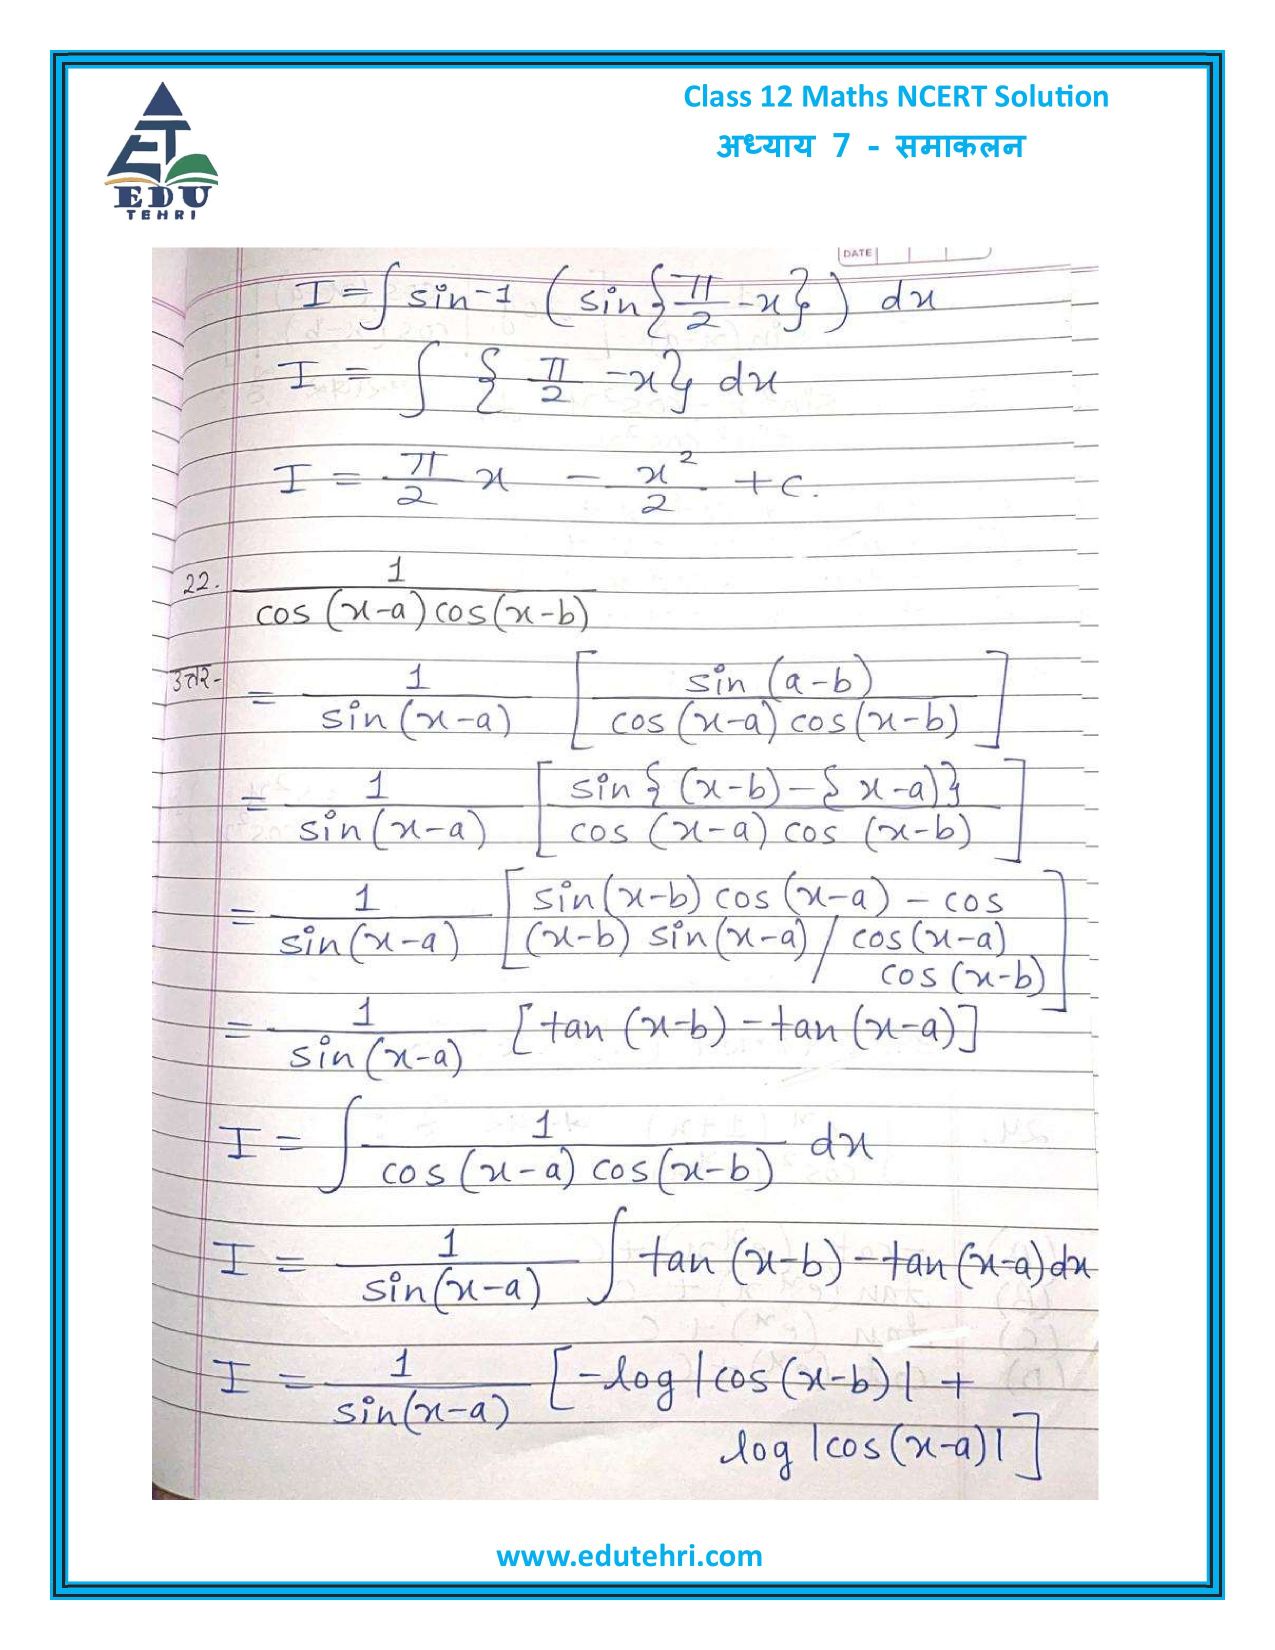 Class 12 Maths NCERT Solution
अध्याय 7 - समाकलन
EDU
TEHRI
DATE
I = ∫ sin-1 (sin{π/2 -x}) dx
I = ∫ {π/2 -x} dx
I = π/2 x - x²/2 + c.
22. 1/cos(x-a)cos(x-b)
उत्तर- = 1/sin(x-a) [sin(a-b)/cos(x-a)cos(x-b)]
= 1/sin(x-a) [sin{(x-b)-{x-a)}/cos(x-a)cos(x-b)]
= 1/sin(x-a) [sin(x-b)cos(x-a) - cos
(x-b) sin(x-a) / cos(x-a)
cos(x-b)]
= 1/sin(x-a) [tan(x-b) - tan(x-a)]
I = ∫ 1/cos(x-a)cos(x-b) dx
I = 1/sin(x-a) ∫ tan(x-b) - tan(x-a)dx
I = 1/sin(x-a) [-log|cos(x-b)| +
log|cos(x-a)|]
www.edutehri.com